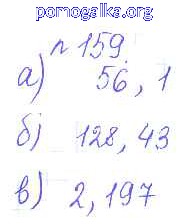 pomogalka.org
n 159.
а) 56,1
б) 128,43
в) 2,197